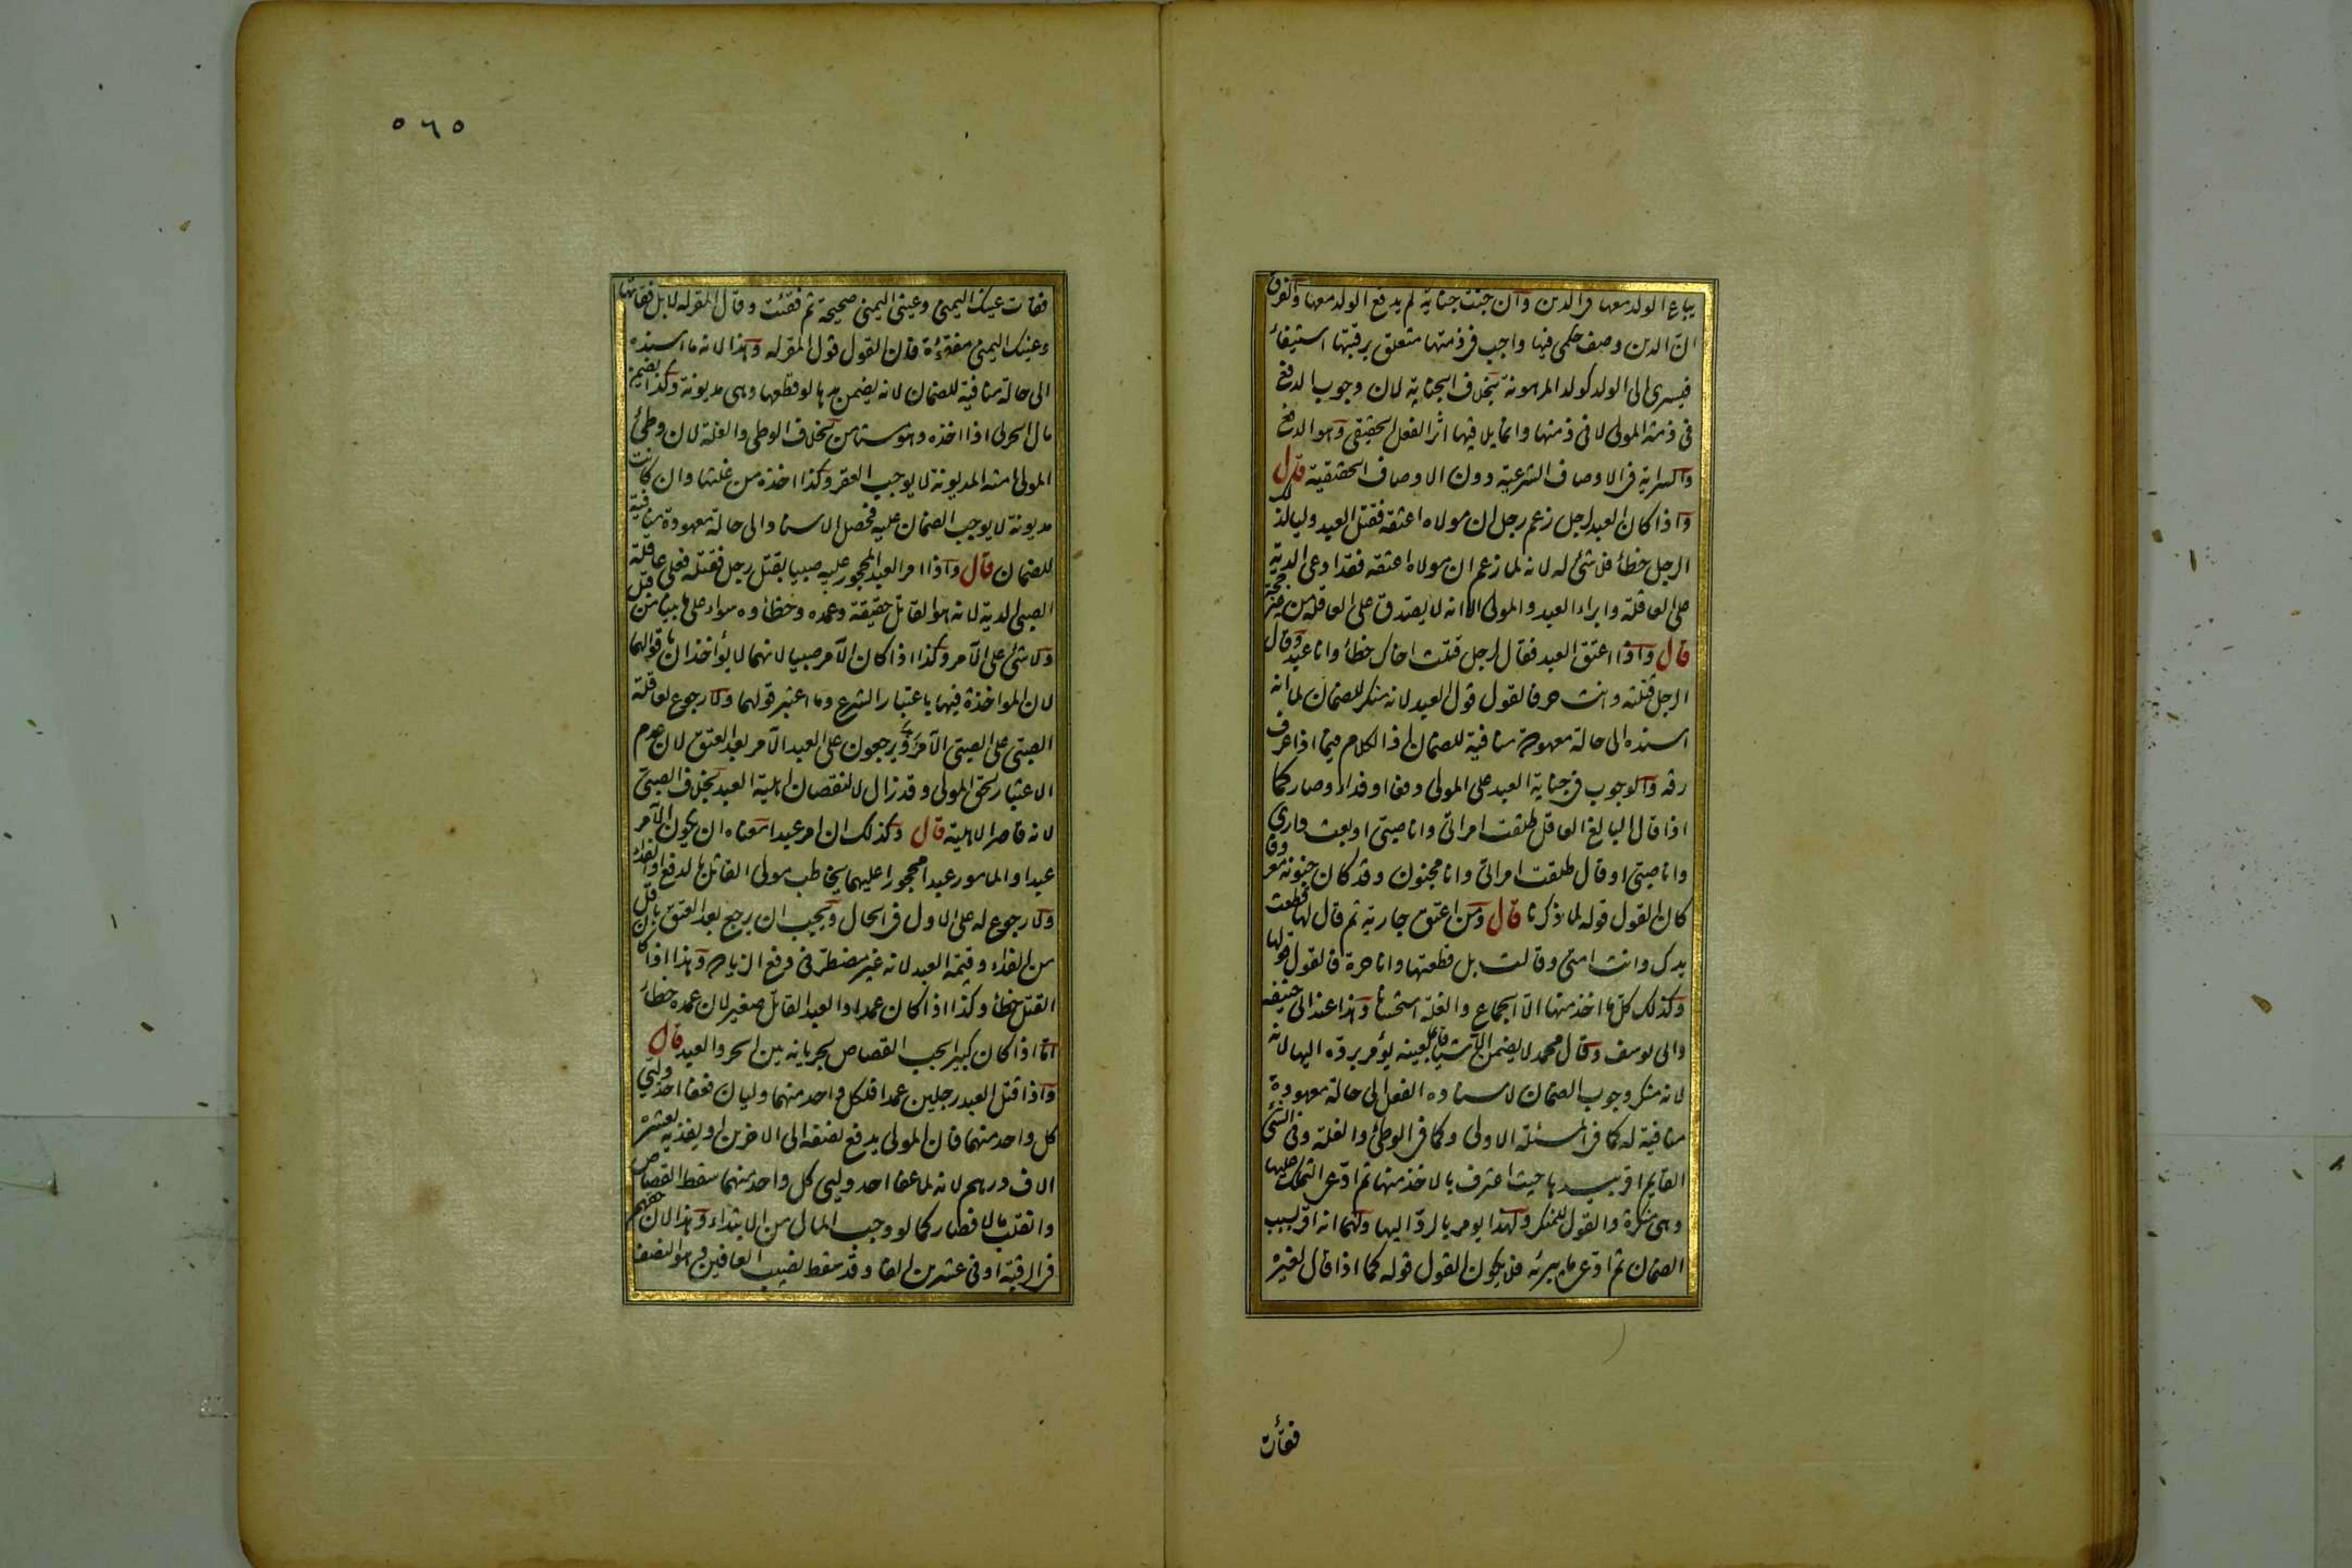 يباع الولد معها في الدين وان جنت جناية لم يدفع الولد معها والفرق
ان الدين وصف حكمي فيها واجب في ذمتها متعلق برقبتها استيفاء
فيسرى الى الولد كولد المرهونة بخلاف الجناية لان وجوب الدفع
في ذمة المولى لا في ذمتها وانما يلاقيها اثر الفعل الحقيقي وهو الدفع
والسراية في الاوصاف الشرعية دون الاوصاف الحقيقية قال
واذا كان العبد لرجل زعم رجل ان مولاه اعتقه فقتل العبد وليا لذلك
الرجل خطأ فلا شئ له لانه لما زعم ان مولاه اعتقه فقد ادعى الدية
على العاقلة وابراء العبد والمولى الا انه لا يصدق على العاقلة من غير حجة
قال واذا اعتق العبد فقال لرجل قتلت اخاك خطأ وانا عبد وقال
الرجل قتلته وانت حر فالقول قول العبد لانه منكر للضمان لما انه
اسنده الى حالة معهودة منافية للضمان اذ الكلام فيما اذا عرف
رقه والوجوب في جناية العبد على المولى دفعا او فداء وصار كما
اذا قال البالغ العاقل طلقت امراتي وانا صبي او بعت داري
وانا صبي او قال طلقت امراتي وانا مجنون وقد كان جنونه معروفا
كان القول قوله لما ذكرنا قال ومن اعتق جارية ثم قال لها قطعت
يدك وانت امتي وقالت بل قطعتها وانا حرة فالقول قولها
وكذلك كل ما اخذ منها الا الجماع والغلة استحسانا وهذا عند ابي حنيفة
وابي يوسف وقال محمد لا يضمن الا شيا قائما بعينه يؤمر برده اليها لانه
لانه منكر وجوب الضمان لاسناده الفعل الى حالة معهودة
منافية له كما في المسئلة الاولى وكما في الوطئ والغلة وفي الشئ
القايم اقر بيدها حيث اعترف بالاخذ منها ثم ادعى التملك عليها
وهي منكرة والقول للمنكر ولهذا يومر بالرد اليها ولهما انه اقر بسبب
الضمان ثم ادعى ما يبرئه فلا يكون القول قوله كما اذا قال لغيره
فقأت
٥٦٥
فقات عينك اليمنى وعيني اليمنى صحيحة ثم فقئت وقال المقر له لا بل فقأتها
وعينك اليمنى مفقوءة فان القول قول المقر له وهذا لانه ما اسنده
الى حالة منافية للضمان لانه يضمن يدها لو قطعها وهي مديونة وكذا يضمن
مال الحربي اذا اخذه وهو مستامن بخلاف الوطي والغلة لان وطئ
المولى امته المديونة لا يوجب العقر وكذا اخذه من غلتها وان كانت
مديونة لا يوجب الضمان عليه فحصل الاسناد الى حالة معهودة منافية
للضمان قال واذا امر العبد المحجور عليه صبيا بقتل رجل فقتله فعلى عاقلة
الصبي الدية لانه هو القاتل حقيقة وعمده وخطأوه سواء على ما بينا من قبل
ولا شئ على الآمر وكذا اذا كان الآمر صبيا لانهما لا يؤاخذان باقوالهما
لان المواخذة فيهما باعتبار الشرع وما اعتبر قولهما ولا رجوع لعاقلة
الصبي على الصبي الآمر ويرجعون على العبد الآمر بعد العتق لان عدم
الاعتبار لحق المولى وقد زال لا لنقصان اهلية العبد بخلاف الصبي
لانه قاصر الاهلية قال وكذلك ان امر عبدا معناه ان يكون الآمر
عبدا والمامور عبدا محجورا عليهما يخاطب مولى القاتل بالدفع او الفداء
ولا رجوع له على الاول في الحال ويجب ان يرجع بعد العتق باقل
من الفداء وقيمة العبد لانه غير مضطر في دفع الزيادة وهذا اذا كان
القتل خطأ وكذا اذا كان عمدا والعبد القاتل صغير لان عمده خطأ
اما اذا كان كبيرا يجب القصاص لجريانه بين الحر والعبد قال
واذا قتل العبد رجلين عمدا ولكل واحد منهما وليان فعفا احد وليي
كل واحد منهما فان المولى يدفع نصفه الى الاخرين او يفديه بعشرة
الاف درهم لانه لما عفا احد وليي كل واحد منهما سقط القصاص
وانقلب مالا فصار كما لو وجب المال من الابتداء وهذا لان حقهم
في الرقبة او في عشرين الفا وقد سقط نصيب العافيين وهو النصف